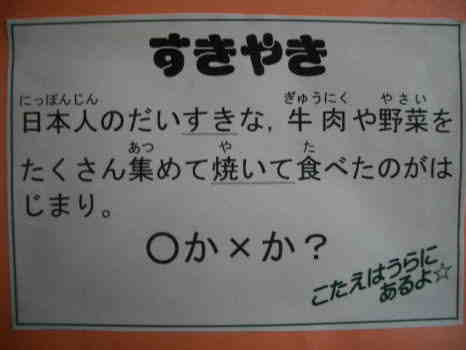 すきやき
にっぽんじん ぎゅうにく やさい
日本人のだいすきな，牛肉や野菜を
あつ や た
たくさん集めて焼いて食べたのがは
じまり。
○か×か？
こたえはうらに
あるよ☆